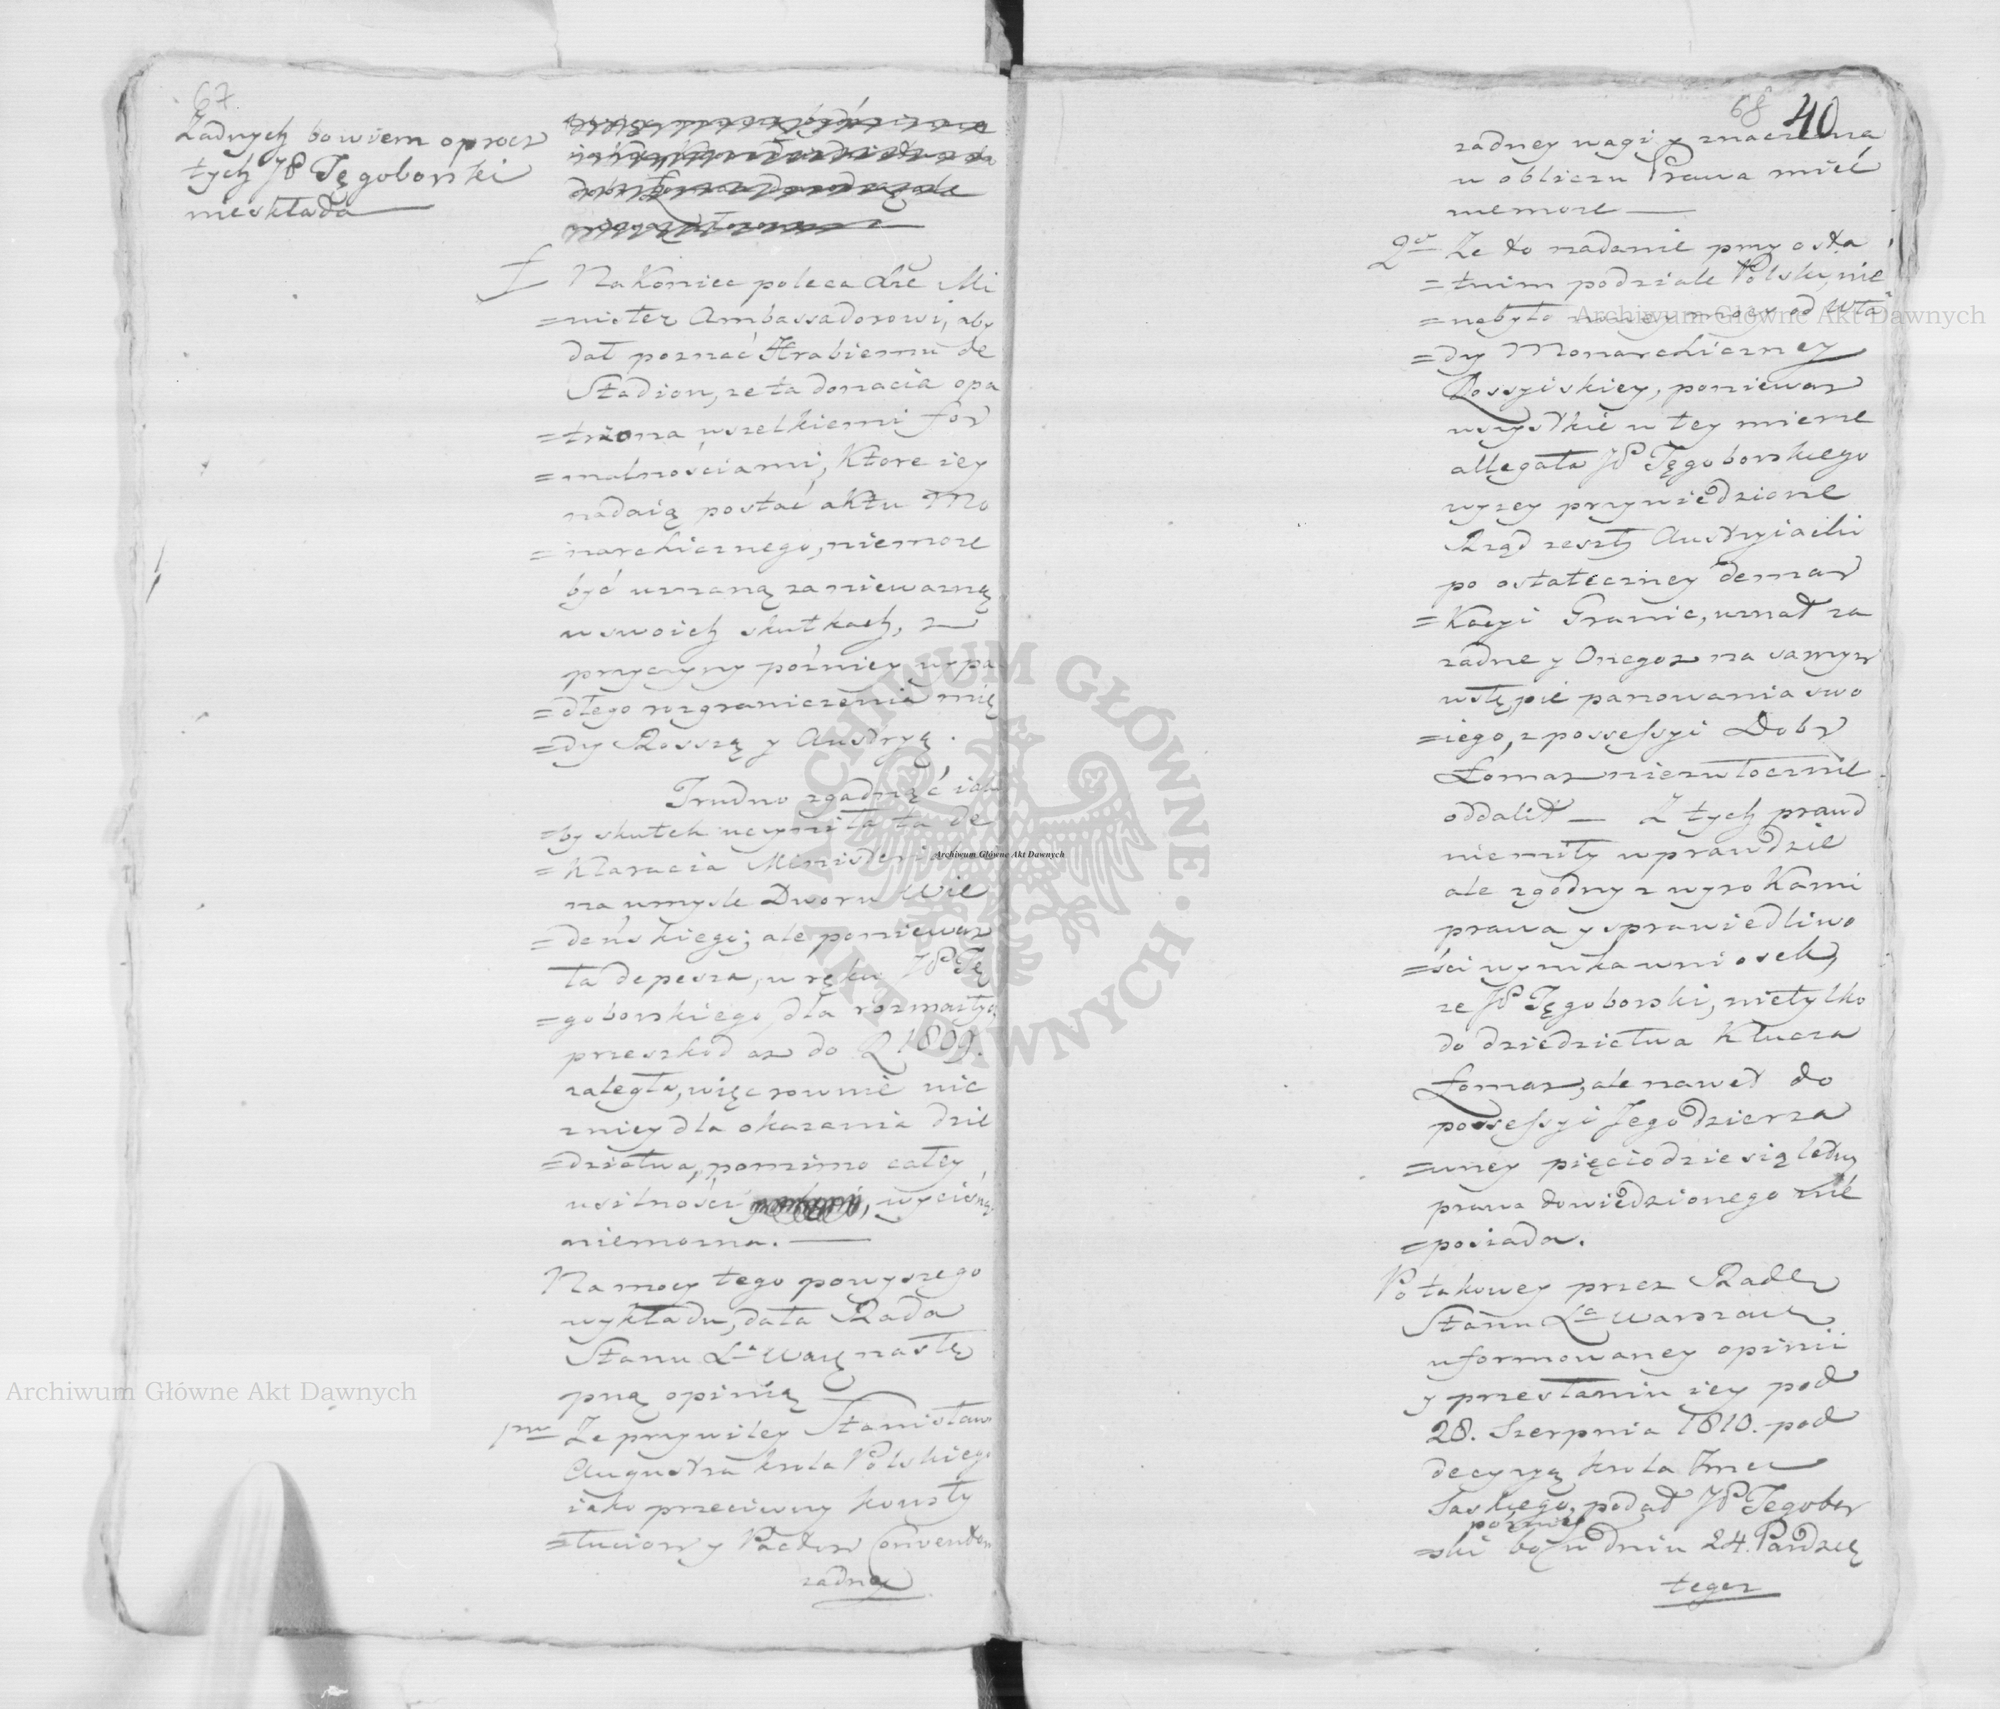 67.
Zadnych bowiem oprocz
tych JP Tęgoborski
nieskłada
Nakoniec poleca
=nister Ambassadorowi, aby
dał poznać Hrabiemu de
Stadion, ze ta donacia opa
=trzona wszelkiemi for
=malnościami, ktore iey
nadaią postać aktu Mo
=narchicznego, niemoze
być uznaną za niewazną
w swoich skutkach, z
przyczyny pozniey wypa
=dłego rozgraniczenia mię
=dzy Rossyą y Austryą.
Trudno zgadnąć iaki
=by skutek uczyniła ta de
=klaracia
na umysle Dworu Wie
=deńskiego; ale poniewaz
ta depesza, w ręku JP Tę
=goborskiego, dla rozmaitych
przeszkod az do R 1809.
zaległa, więc rownie nic
zniey dla okazania dzie
=dzictwa, pomimo całey
usilności , wycisnąć
niemozna.
Na mocy tego powyszego
wykładu, dała Rada
Stanu Xa Warę nastę
pną opinią
1mo Ze przywiley Stanisława
Augusta krola Polskiego
iako przeciwny konsty
=tuciom y Pactom Conventom
zadney
68 40
zadney wagi y znaczenia
w obliczu Prawa mieć
niemoze
2do Ze to nadanie przy osta
=tnim podziale Polski, nie
=nabyło nowey mocy od Wła
=dzy Monarchiczney
Rossyiskiey, poniewaz
wszystkie w tey mierze
allegata JP Tęgoborskiego
wyzey przywiedzione
Rząd zeszły Austryiacki
po ostateczney demar
=kacyi Granic, uznał za
zadne y Onegoz na samym
wstępie panowania swo
=iego, z possessyi Dobr
Łomaz niezwłocznie
oddalił — Z tych prawd
niemiły wprawdzie
ale zgodny z wyrokami
prawa y sprawiedliwo
=ści wynika wniosek,
ze JP Tęgoborski, nietylko
do dziedzictwa klucza
Łomaz, ale nawet do
possessyi Jego dzierza
=wney pięciodziesiąletniey
prawa dowiedzionego nie
=posiada.
Po takowey przez Radę
Stanu Xa Warszaw
uformowaney opinii
y przesłaniu iey pod
28. Sierpnia 1810. pod
decyzyą krola Jmci
Saskiego, podał JP Tęgobor
=ski w dniu 24. Pazdzie
tegoz